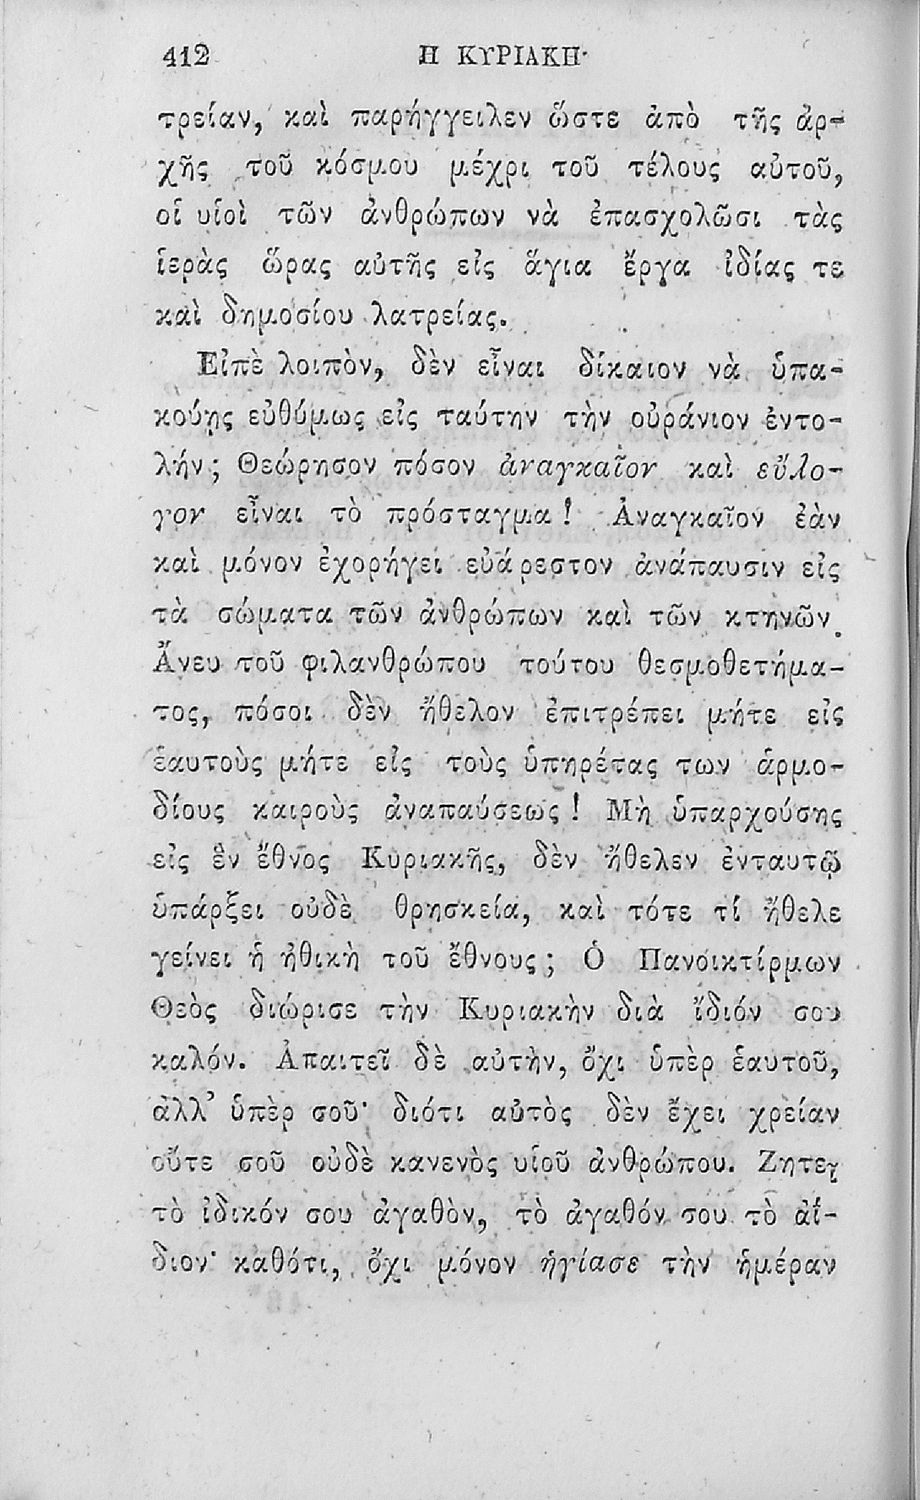 412 Η ΚΥΡΙΑΚΗ·
τρείαν, καὶ παρήγγειλεν ὥστε ἀπὸ τῆς ἀρ-
χῆς τοῦ κόσμου μέχρι τοῦ τέλους αὐτοῦ,
οἱ υἱοὶ τῶν ἀνθρώπων νὰ ἐπασχολῶσι τὰς
ἱερὰς ὥρας αὐτῆς εἰς ἅγια ἔργα ἰδίας τε
καὶ δημοσίου λατρείας.
Εἰπὲ λοιπὸν, δὲν εἶναι δίκαιον νὰ ὑπα-
κούῃς εὐθύμως εἰς ταύτην τὴν οὐράνιον ἐντο-
λήν; Θεώρησον πόσον ἀναγκαῖον καὶ εὔλο-
γον εἶναι τὸ πρόσταγμα! Ἀναγκαῖον ἐὰν
καὶ μόνον ἐχορήγει εὐάρεστον ἀνάπαυσιν εἰς
τὰ σώματα τῶν ἀνθρώπων καὶ τῶν κτηνῶν.
Ἄνευ τοῦ φιλανθρώπου τούτου θεσμοθετήμα-
τος, πόσοι δὲν ἤθελον ἐπιτρέπει μήτε εἰς
ἑαυτοὺς μήτε εἰς τοὺς ὑπηρέτας των ἁρμο-
δίους καιροὺς ἀναπαύσεως! Μὴ ὑπαρχούσης
εἰς ἓν ἔθνος Κυριακῆς, δὲν ἤθελεν ἐνταυτῷ
ὑπάρξει οὐδὲ θρησκεία, καὶ τότε τί ἤθελε
γείνει ἡ ἠθικὴ τοῦ ἔθνους; Ὁ Πανοικτίρμων
Θεὸς διώρισε τὴν Κυριακὴν διὰ ἴδιόν σου
καλόν. Ἀπαιτεῖ δὲ αὐτὴν, ὄχι ὑπὲρ ἑαυτοῦ,
ἀλλ' ὑπὲρ σοῦ· διότι αὐτὸς δὲν ἔχει χρείαν
οὔτε σοῦ οὐδὲ κανενὸς υἱοῦ ἀνθρώπου. Ζητεῖ
τὸ ἰδικόν σου ἀγαθὸν, τὸ ἀγαθόν σου τὸ ἀΐ-
διον· καθότι, ὄχι μόνον ἡγίασε τὴν ἡμέραν